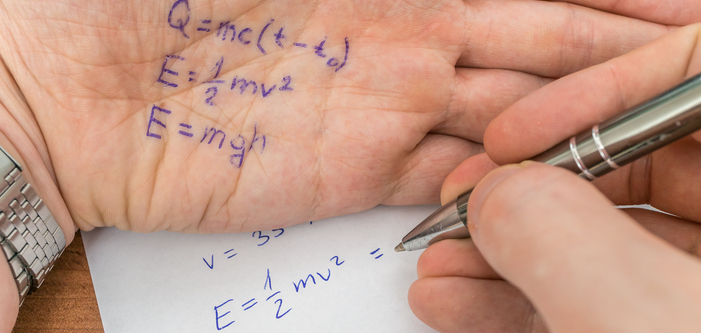 Q = mc(t - t₀)
E = 1/2 mv²
E = mgh
v =
E = 1/2 mv² =